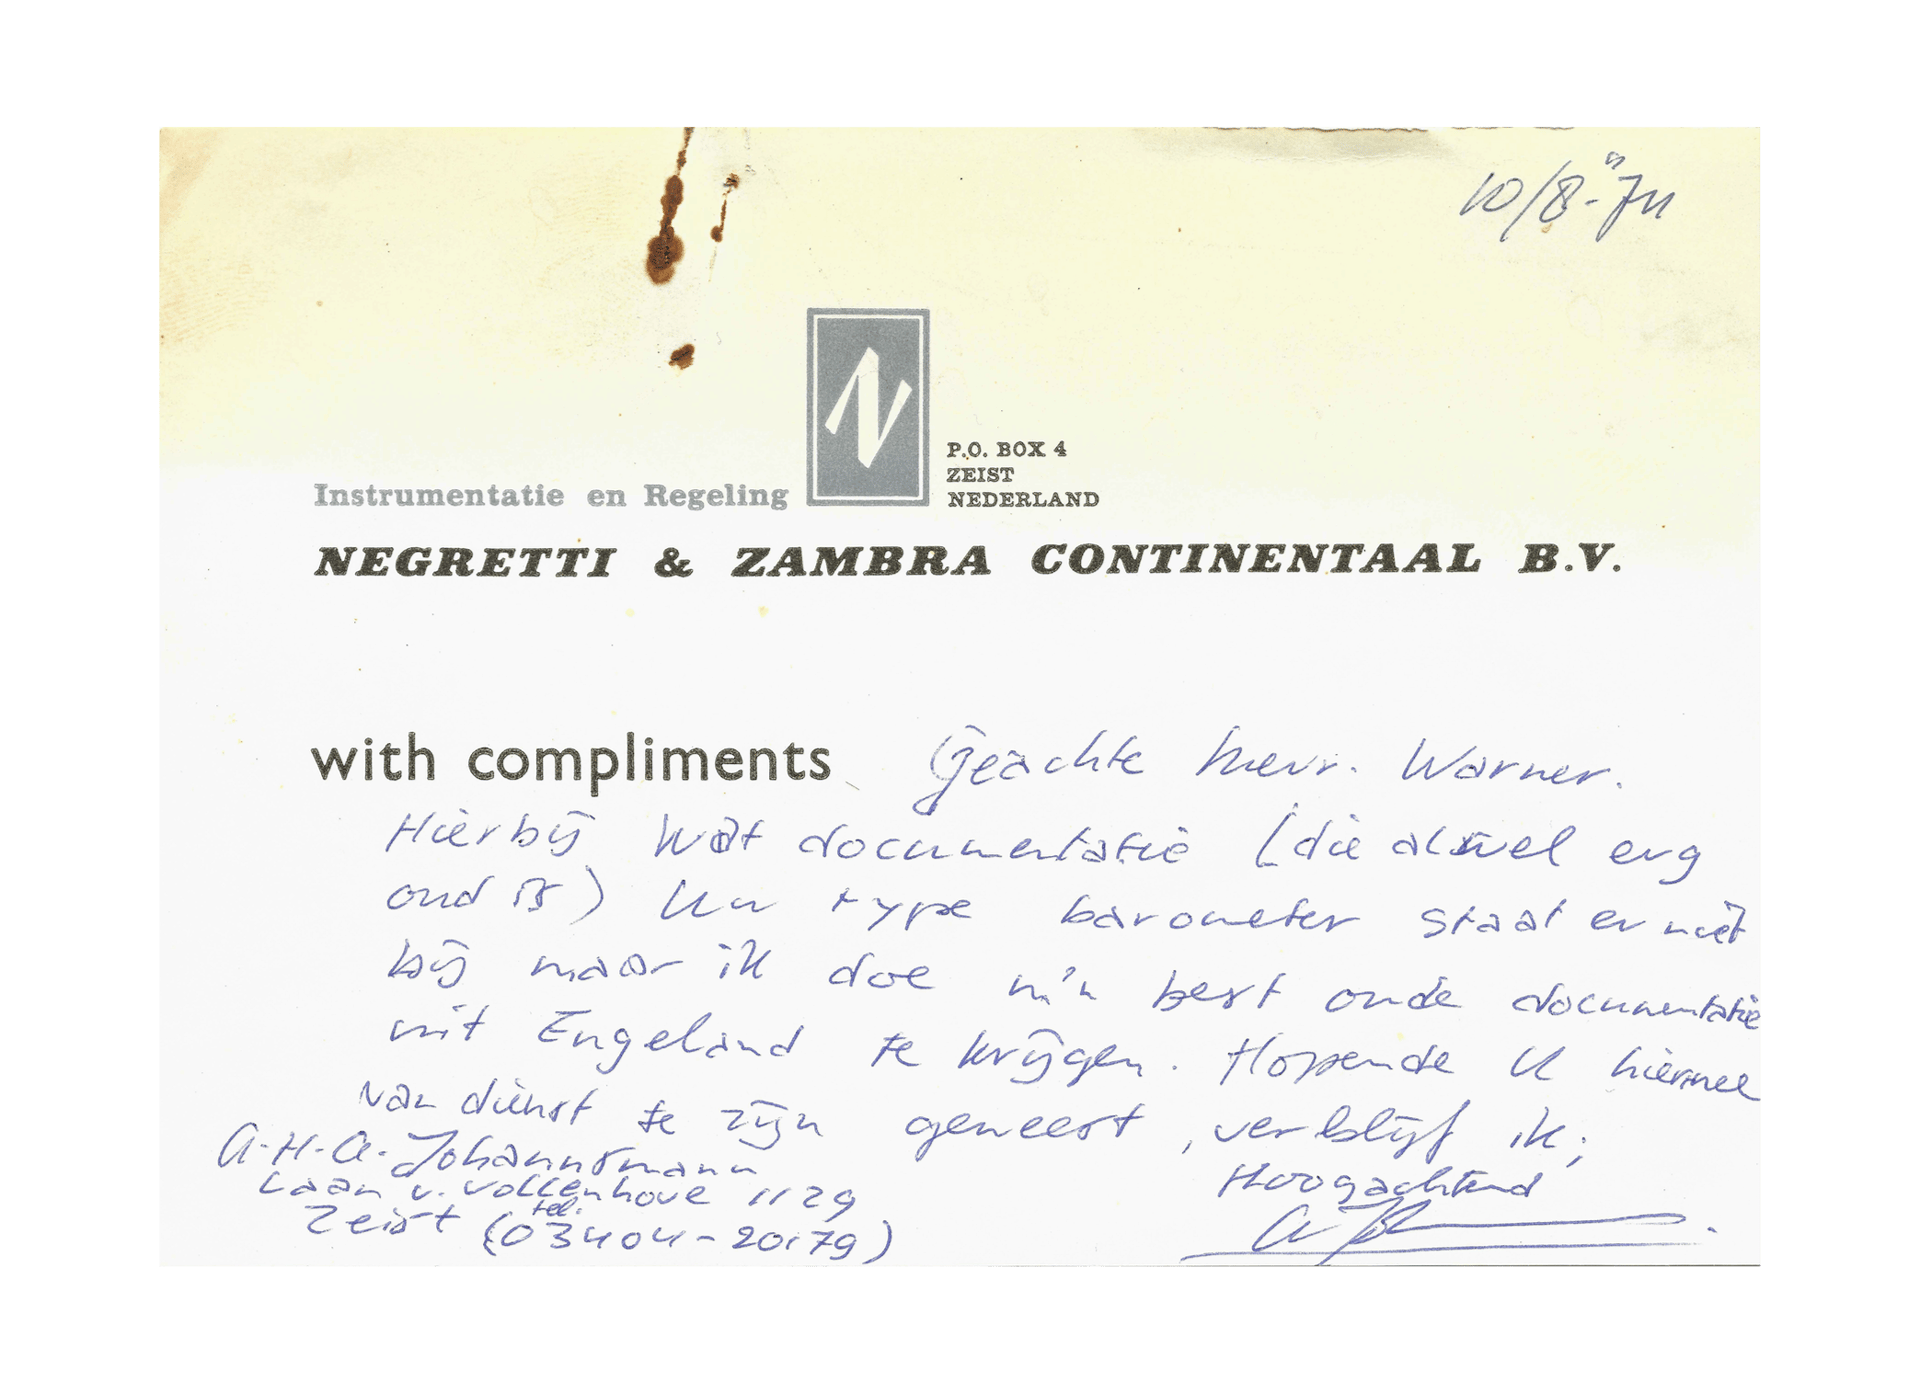 10/8-"74
N
P.O. BOX 4
ZEIST
NEDERLAND
Instrumentatie en Regeling
NEGRETTI & ZAMBRA CONTINENTAAL B.V.
with compliments
Geachte heer. Warner.
Hierbij wat documentatie (die alwel erg
oud is) Uw type barometer staat er niet
bij maar ik doe m'n best oude documentatie
uit Engeland te krijgen. Hopende U hiermee
van dienst te zijn geweest, verblijf ik;
Hoogachtend
A.H.A. Johannsmann
Laan v. Vollenhove 1129
Zeist (tel. 03404-20179)